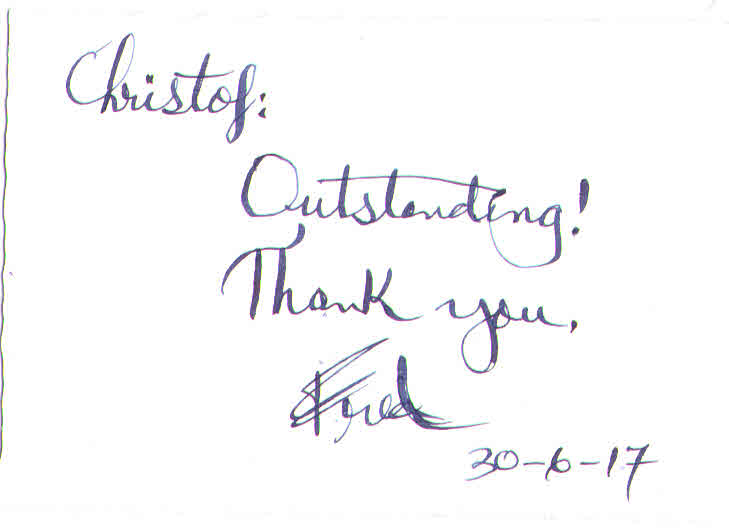 Christof:
Outstanding!
Thank you,
Fred
30-6-17